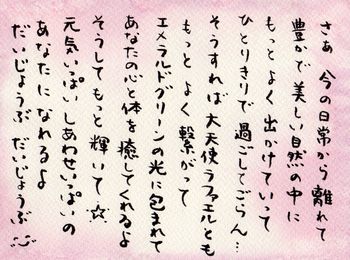 さあ 今の日常から 離れて
豊かで 美しい自然の中に
もっと よく 出かけていって
ひとりきりで 過ごしてごらん…
そうすれば 大天使ラファエルとも
もっと よく 繋がって
エメラルドグリーンの光に包まれて
あなたの心と体を 癒してくれるよ
そうして もっと 輝いて☆
元気いっぱい しあわせいっぱいの
あなたに なれるよ
だいじょうぶ だいじょうぶ